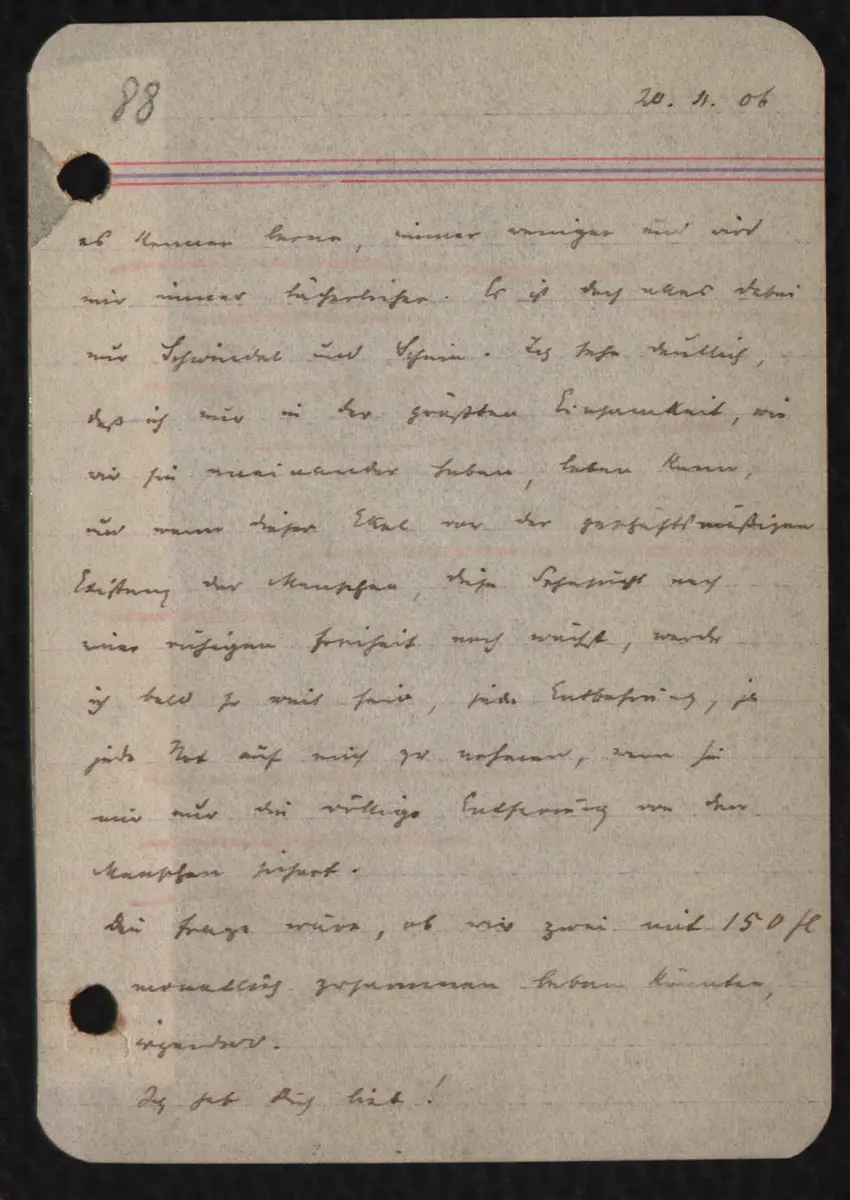 88
20. 11. 06
es kennen lerne, immer weniger und wird
mir immer lächerlicher. Es ist doch alles dabei
nur Schwindel und Schein. Ich sehe deutlich,
daß ich nur in der größten Einsamkeit, wie
wir sie aneinander haben, leben kann,
und wenn dieser Ekel vor der geschäftsmäßigen
Existenz der Menschen, diese Sehnsucht nach
einer ruhigen Freiheit noch wächst, werde
ich bald so weit sein, jede Entbehrung, ja
jede Not auf mich zu nehmen, wenn sie
mir nur die völlige Entfernung von den
Menschen sichert.
Die Frage wäre, ob wir zwei mit 150 fl
monatlich zusammen leben könnten,
irgendwo.
Ich hab Dich lieb!